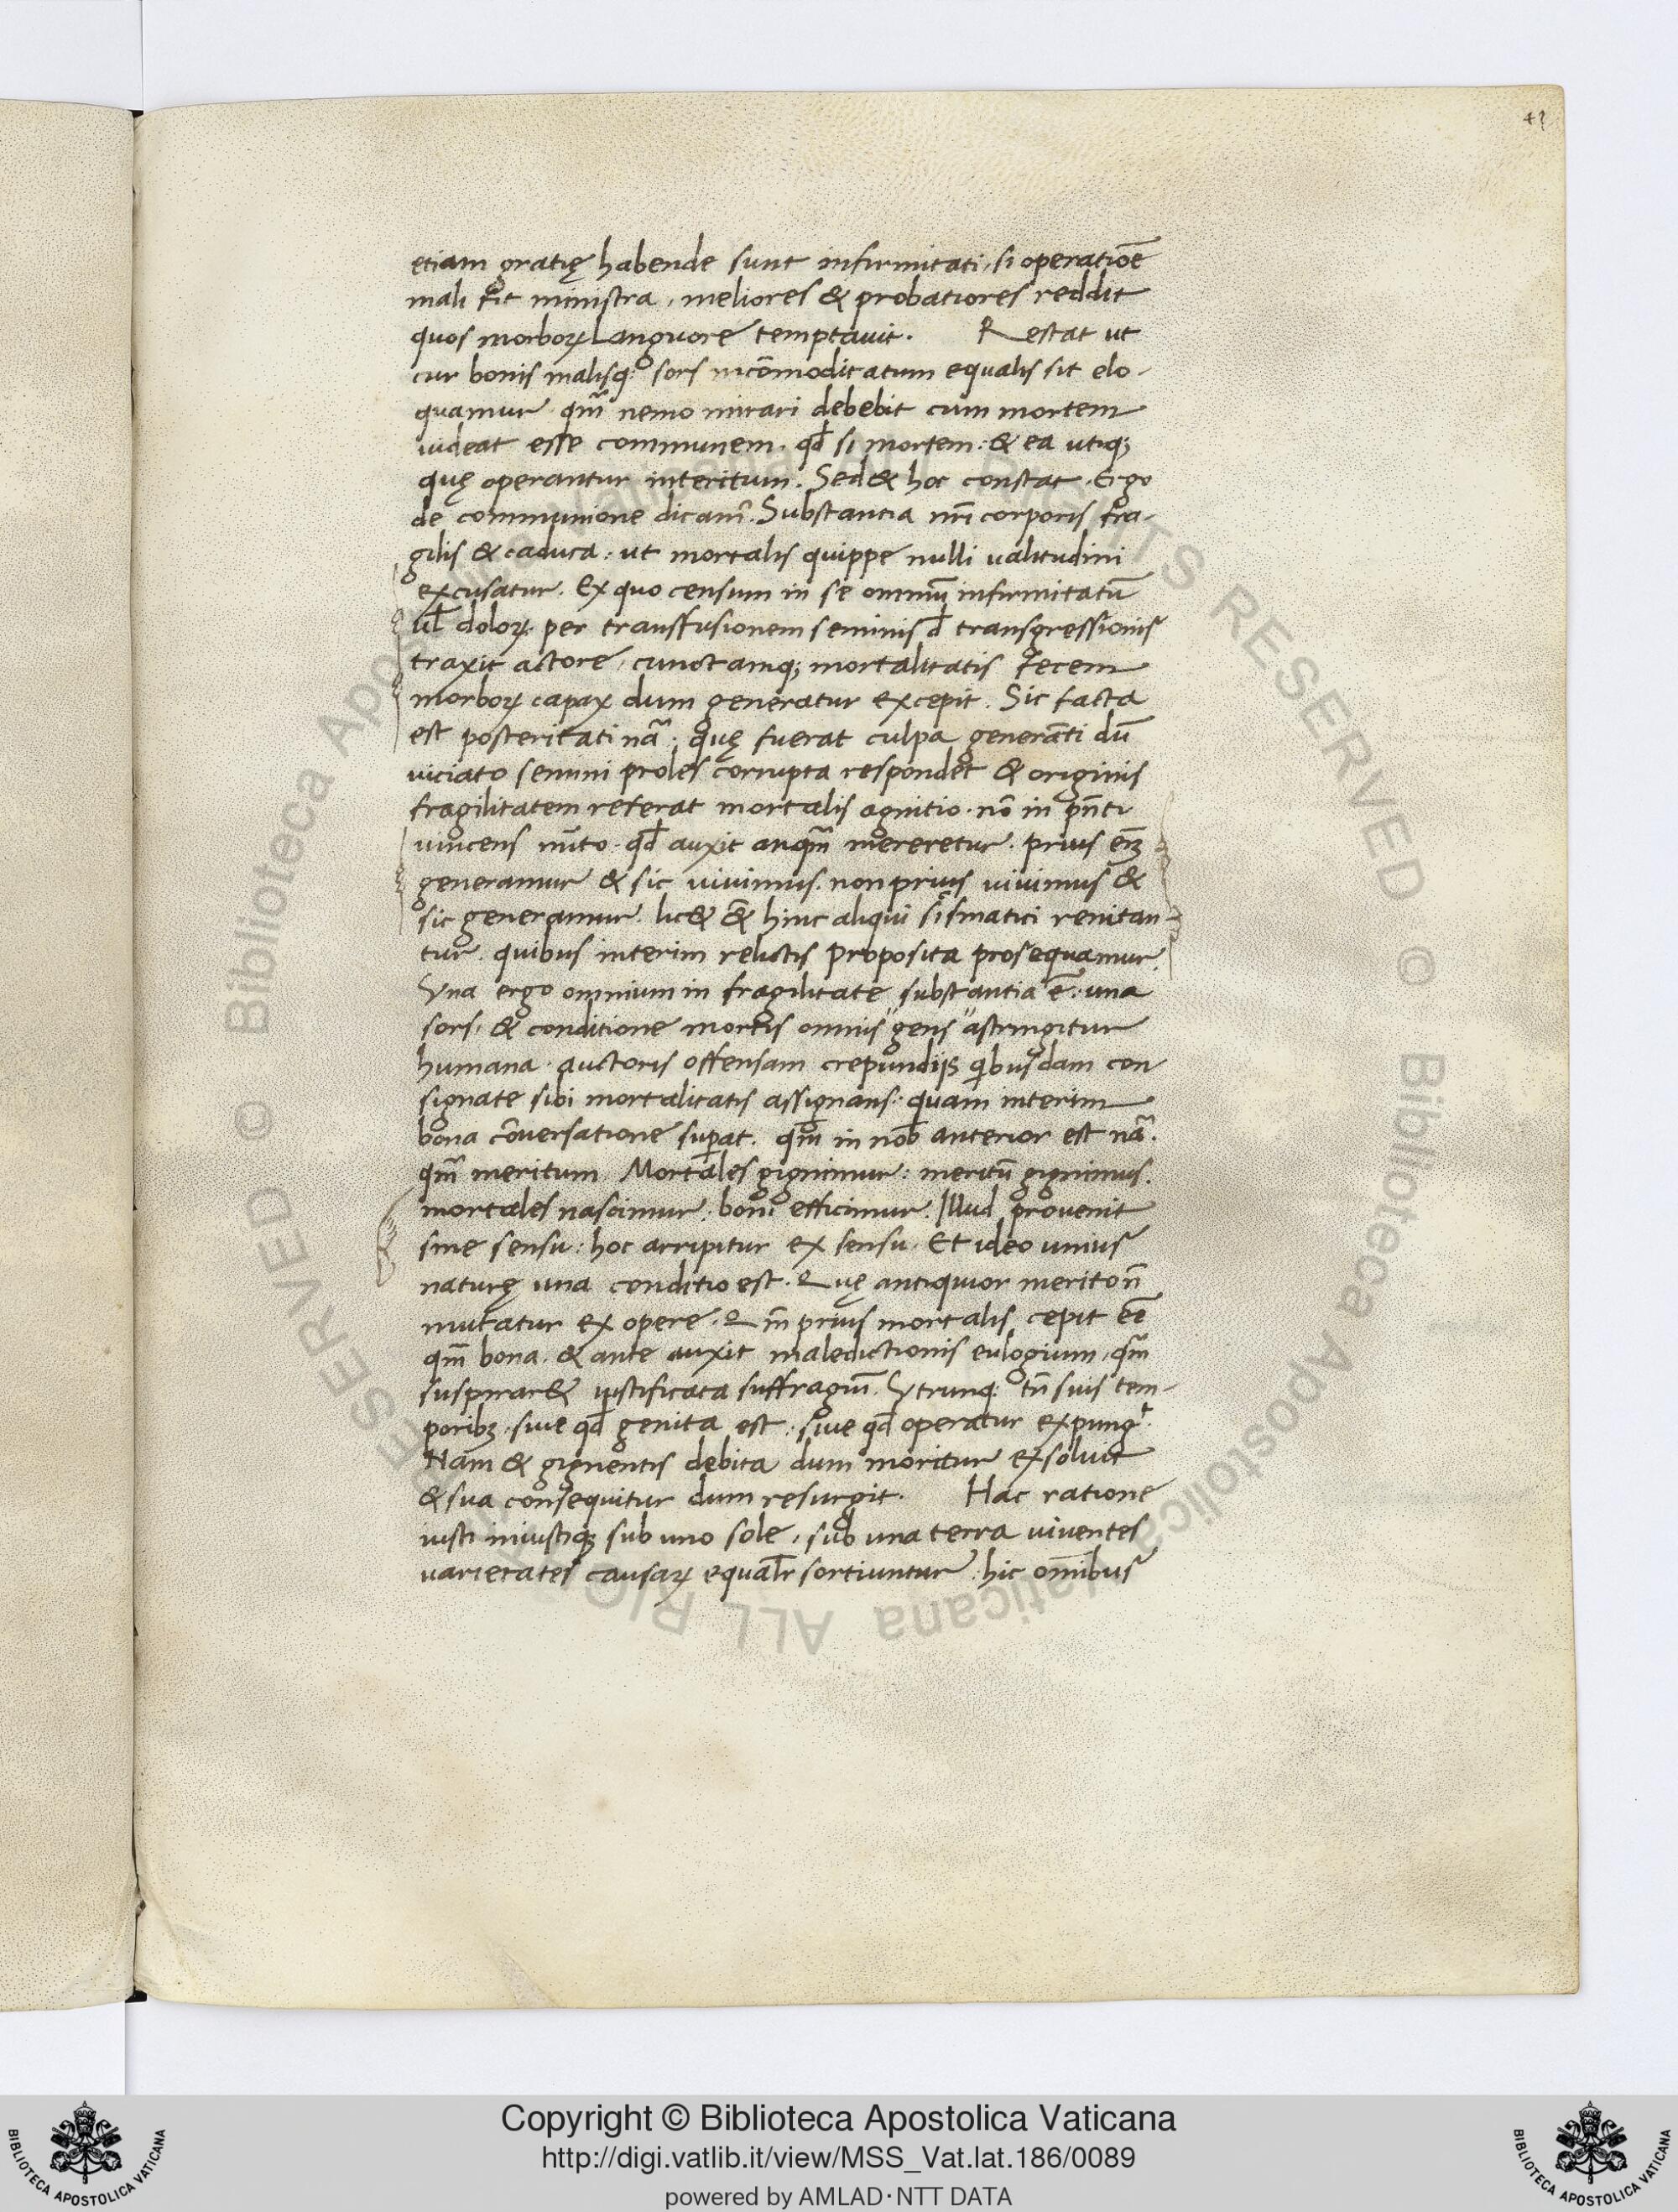 42
etiam gratię habende sunt infirmitati, si operatiōe
mali fit ministra, meliores & probatiores reddit
quos morboꝝ Languore temptavit. Restat ut
cur bonis malisq; sors incōmoditatum equalis sit elo-
quamur qm̄ nemo mirari debebit cum mortem
videat esse communem. qd̄ si mortem: & ea utiq;
quę operantur interitum. Sed & hoc constat. Ergo
de communione dicam̄. Substantia nr̄i corporis fra-
gilis & caduca: ut mortalis quippe nulli valitudini
excusatur. Ex quo censum in se omniū infirmitatū
ul̄ doloꝝ per transfusionem seminis d̄ transgressionis
traxit actore, cunctamq; mortalitatis fecem
morboꝝ capax dum generatur excepit. Sic facta
est posteritati nā. quę fuerat culpa generāti dū
viciato semini proles corrupta respondet & originis
fragilitatem referat mortalis agnitio. nō in pn̄ti
vivcens mīto. qd̄ auxit anqm̄ mereretur. prius em̄
generamur & sic vivimus. non prius vivimus &
sic generamur. lic& & hinc aliqui sismatici renitan-
tur. quibus interim relictis proposita prosequamur.
Vna ergo omnium in fragilitate substantia ē: una
sors, & conditione mortis omnis "gens" astringitur
humana. auctoris offensam crepundijs qibusdam con
signate sibi mortalitatis assignans: quam interim
bona cōversatione supat. qm̄ in nob̄ anterior est nā.
qm̄ meritum. Mortales gignimur: meritū gignimus.
mortales nascimur: boni efficimur. Illud provenit
sine sensu: hoc arripitur ex sensu. Et ideo unius
naturę una conditio est. Quę antiquior merito n̄
mutatur ex opere. Qm̄ prius mortalis cepit eē
qm̄ bona. & ante auxit maledictionis eulogium, qm̄
suspirar& iustificata suffragiū. Vtrunq; tn̄ suis tem-
poribꝫ. sive qd̄ genita est. sive qd̄ operatur expungt.
Nam & gignentis debita dum moritur exsolvit
& sua consequitur dum resurgit. Hac ratione
iusti iniustiqꝫ sub uno sole, sub una terra viventes
varietates causaꝝ equalr̄ sortiuntur. hic om̄ibus
Copyright © Biblioteca Apostolica Vaticana
http://digi.vatlib.it/view/MSS_Vat.lat.186/0089
powered by AMLAD·NTT DATA
BIBLIOTECA APOSTOLICA VATICANA
BIBLIOTECA APOSTOLICA VATICANA
© Biblioteca Apostolica Vaticana ALL RIGHTS RESERVED
© Biblioteca Apostolica Vaticana ALL RIGHTS RESERVED